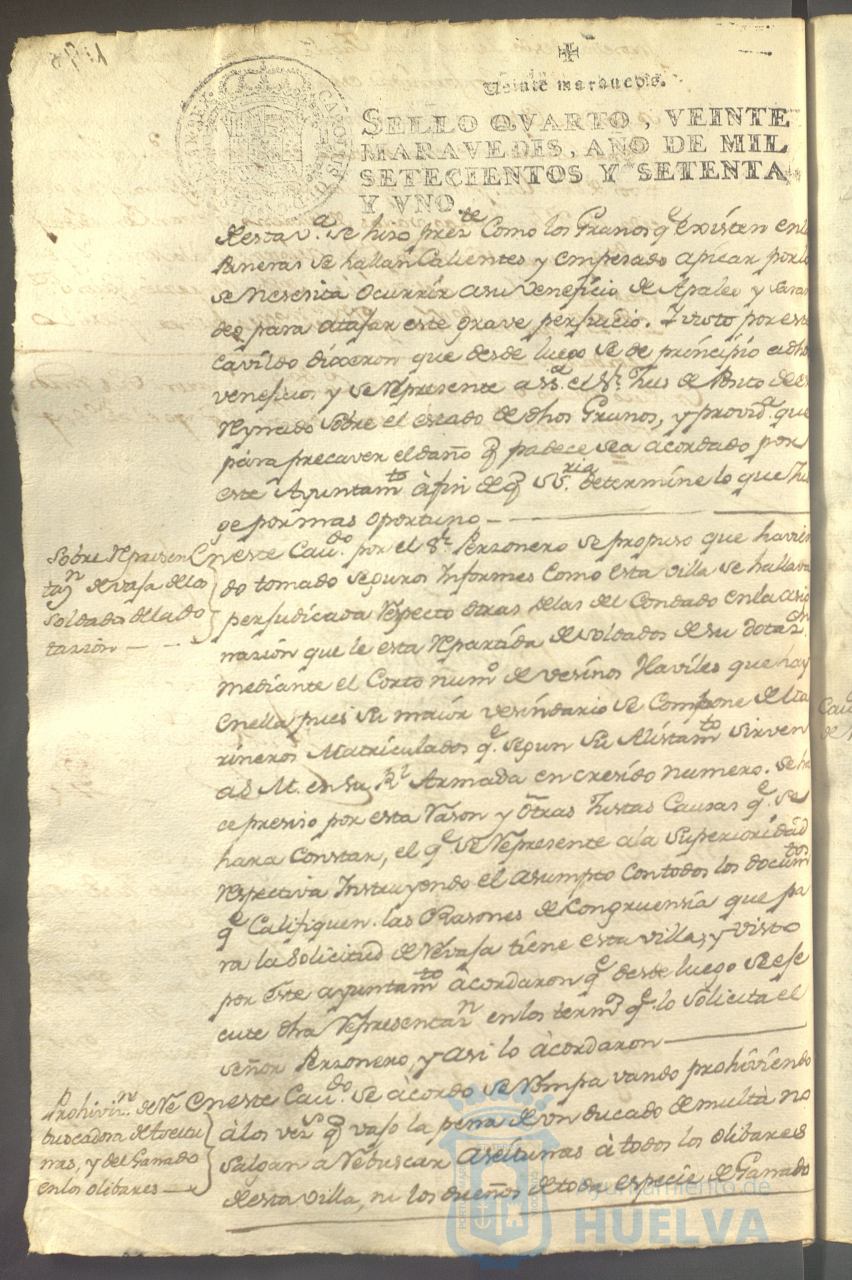 Veinte maravedis.
SELLO QVARTO, VEINTE
MARAVEDIS, AÑO DE MIL
SETECIENTOS Y SETENTA
Y VNO.
desta v.ª se hiso pres.te Como los Granos q.e existen en l
Paneras se hallan Calientes y empesado apicar por lo
se Nesesita Ocurrir asu veneficio de Apaleo y
deo para atajar este grave perjuicio. Y visto por este
Cavildo dixeron que desde luego se de principio adho
veneficio y se Represente a el S.r de Posito de
Reynado sobre el estado de dhos Granos, y provid.ª que
para precaver el daño q padece sea acordado por
este Ayuntam.to àfin de q SS.ria determine lo que Jus
ge por mas oportuno
Sobre Represen
taz.n de vaja de los
Soldados de la do
tazion
En este Cav.do por el S.r Perzonero se propuso que havien
do tomado seguros Informes Como esta villa se hallava
perjudicada Respecto otras delas del Condado en la asig
nazion que le esta Repartida de soldados de su dotaz.n
mediante el Corto num.o de vesinos Haviles que hay
en ella pues su maior vesindario se Compone de Ma
rineros Matriculados q.e segun su Alistam.to sirven
a S. M. en su R.l Armada en cresido numero. se ha
ce presiso por esta Rason y otras Justas Causas q.e se
hara Constar, el q.e se Represente ala Superioridad
respectiva Instruyendo el asumpto con todos los docum.tos
q.e Califiquen las Rasones de Congruensia que pa
ra la solicitud de Revaja tiene esta villa, y visto
por este ayuntam.to acordaron q.e desde luego se eje
cute dha Representaz.n en los term.os q.e lo solicita el
señor Perzonero, y asi lo àcordaron
Prohiviz.n de Re
buscadora de Aseitu
nas, y del Ganado
en los olibares
En este Cav.do se àcordo se Rompa vando prohiviendo
à los vez.s q vajo la pena de un ducado de multa no
salgan a Rebuscar Aseitunas à todos los olibares
de esta villa, ni los dueños de toda espesie de Ganado
Ayuntamiento de
HUELVA